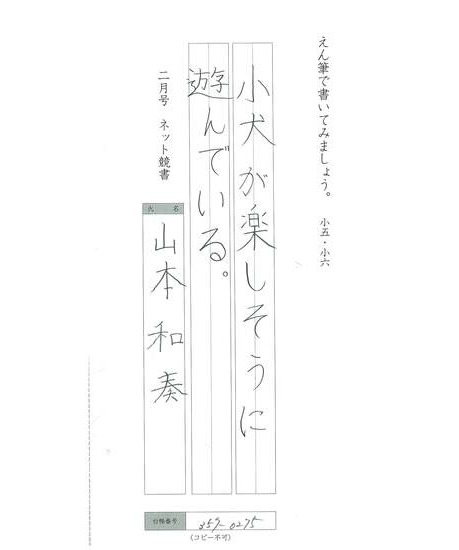 えん筆で書いてみましょう。 小五・小六
小犬が楽しそうに
遊んでいる。
二月号 ネット競書
氏名
山本和奏
台帳番号 359-0275
(コピー不可)